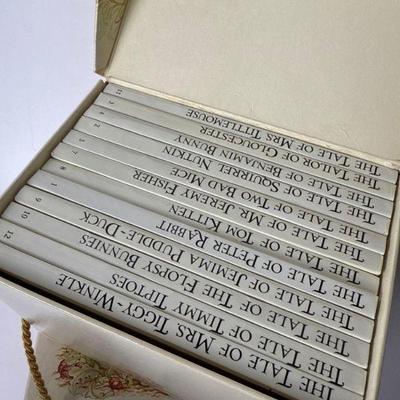 THE TALE OF MRS. TITTLEMOUSE 11
THE TAILOR OF GLOUCESTER 3
THE TALE OF BENJAMIN BUNNY 4
THE TALE OF SQUIRREL NUTKIN 2
THE TALE OF TWO BAD MICE 5
THE TALE OF MR. JEREMY FISHER 7
THE TALE OF TOM KITTEN 8
THE TALE OF PETER RABBIT 1
THE TALE OF JEMIMA PUDDLE-DUCK 9
THE TALE OF THE FLOPSY BUNNIES 10
THE TALE OF TIMMY TIPTOES 12
THE TALE OF MRS. TIGGY-WINKLE